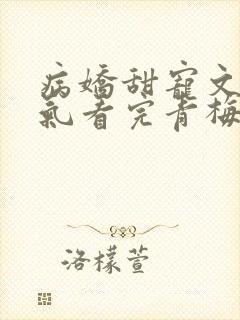 病嬌甜寵文
氣看完青梅
洛檬萱